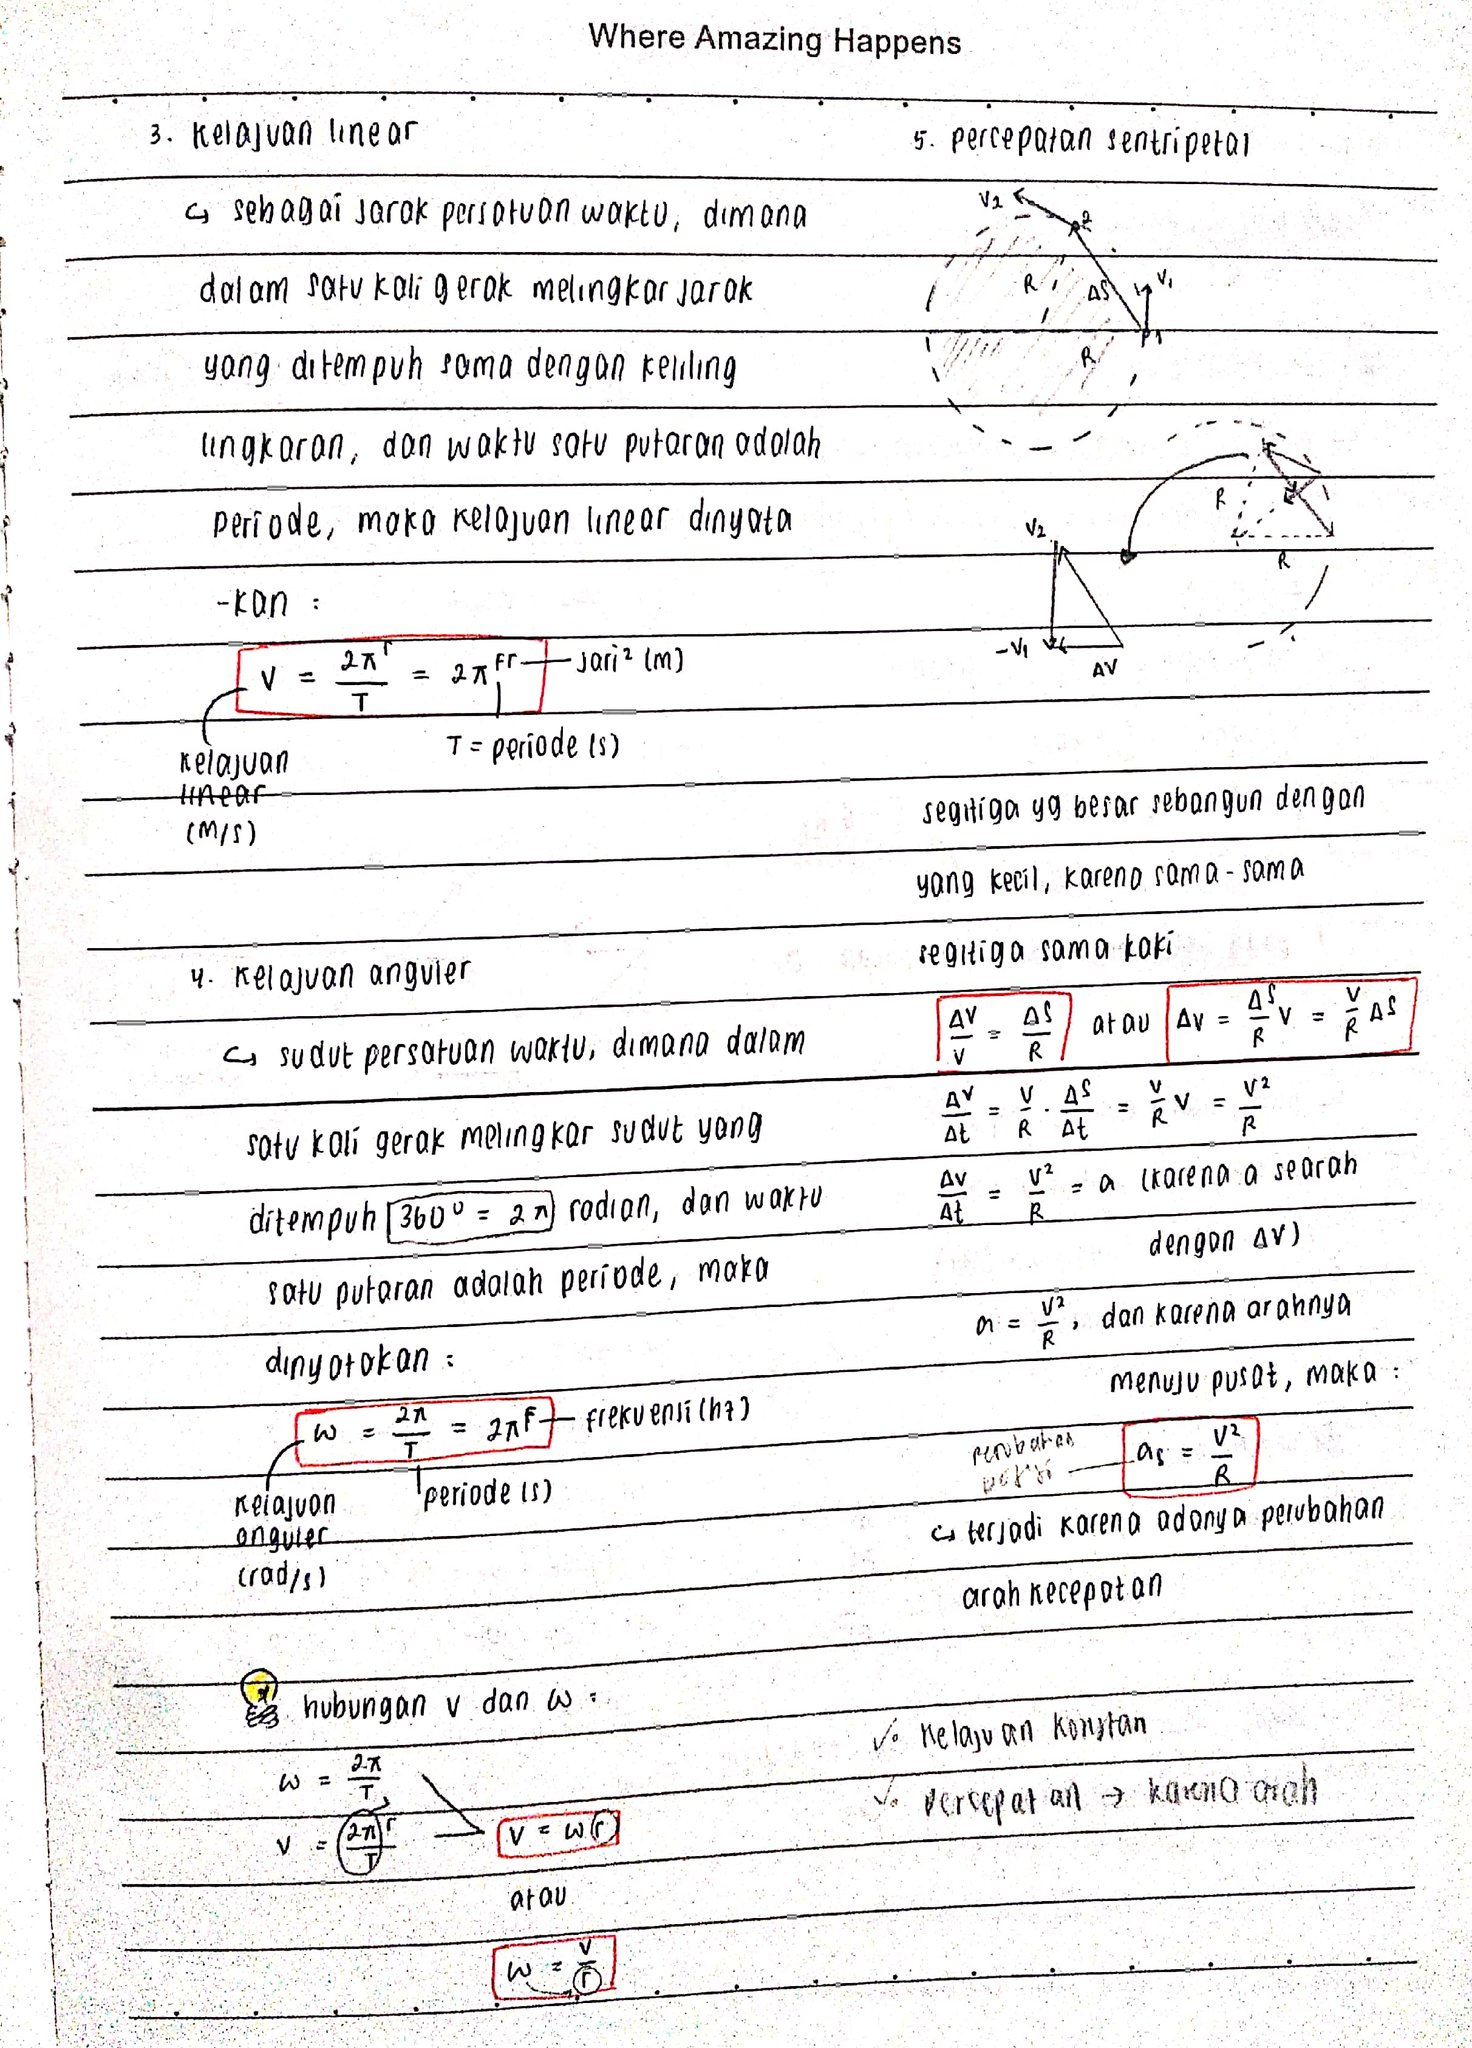 Where Amazing Happens
3. Kelajuan linear
↪ sebagai jarak persatuan waktu, dimana
dalam satu kali gerak melingkar jarak
yang ditempuh sama dengan keliling
lingkaran, dan waktu satu putaran adalah
periode, maka kelajuan linear dinyata
-kan :
V = 2πr/T = 2πFr — jari² (m)
T = periode (s)
Kelajuan
linear
(m/s)
4. Kelajuan anguler
↪ sudut persatuan waktu, dimana dalam
satu kali gerak melingkar sudut yang
ditempuh 360° = 2π radian, dan waktu
satu putaran adalah periode, maka
dinyatakan :
ω = 2π/T = 2πF — frekuensi (hz)
periode (s)
Kelajuan
anguler
(rad/s)
hubungan v dan ω :
ω = 2π/T
V = 2πr/T
V = ω r
atau
ω = V/r
5. percepatan sentripetal
V2
P2
R
ΔS
V1
P1
R
R
R
V2
-V1
ΔV
segitiga yg besar sebangun dengan
yang kecil, karena sama-sama
segitiga sama kaki
ΔV/V = ΔS/R atau ΔV = ΔS/R V = V/R ΔS
ΔV/Δt = V/R . ΔS/Δt = V/R V = V²/R
ΔV/Δt = V²/R = a (karena a searah
dengan ΔV)
a = V²/R, dan karena arahnya
menuju pusat, maka :
perubahan
as = V²/R
↪ terjadi karena adanya perubahan
arah kecepatan
✓. Kelajuan konstan
✓. Percepatan → karena arah